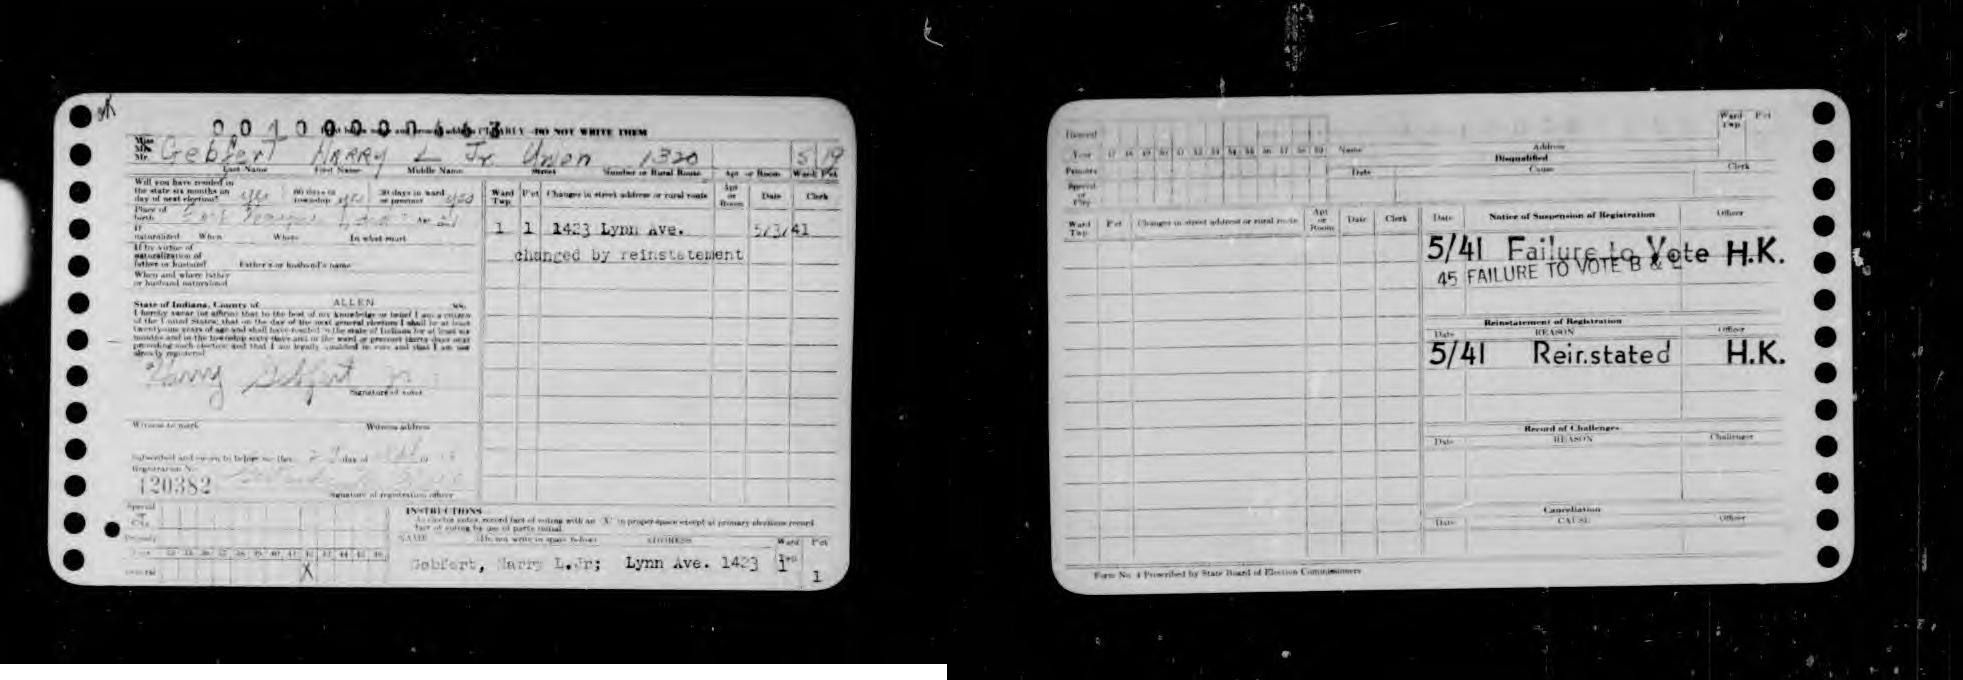 OK
001000000463
CLEARLY DO NOT WRITE THEM
Miss
Mrs.
Mr. Gebfert HARRY L Jr. Union 1320 5 19
Last Name First Name Middle Name Street Number or Rural Route Apt or Room Ward Pct
Will you have resided in the state six months on day of next election? yes 60 days in township yes 30 days in ward or precinct yes
Place of birth
If naturalized When Where In what court
If by virtue of naturalization of father or husband Father's or husband's name
When and where father or husband naturalized
State of Indiana, County of ALLEN ss.
I hereby swear (or affirm) that to the best of my knowledge or belief I am a citizen
of the United States; that on the day of the next general election I shall be at least
twenty-one years of age and shall have resided in the state of Indiana for at least six
months and in the township sixty days and in the ward or precinct thirty days next
preceding such election and that I am legally qualified to vote and that I am not
already registered.
Harry Gebfert Jr
Signature of voter
Witness to mark Witness address
Subscribed and sworn to before me this day of
Registration No.
120382
Signature of registration officer
Ward Twp Pct Changes in street address or rural route Apt or Room Date Clerk
1 1 1423 Lynn Ave. 5/3/41
changed by reinstatement
INSTRUCTIONS
As elector votes, record fact of voting with an "X" in proper space except at primary elections record
fact of voting by use of party initial
NAME (Do not write in space below) ADDRESS Ward Pct
Special or City
Primary
Year 33 34 36 37 38 39 40 41 42 43 44 45 46
General X
Gebfert, Harry L.Jr; Lynn Ave. 1423 1 Twp
1
General
Year 47 48 49 50 51 52 53 54 55 56 57 58 59
Primary
Special or City
Name Address Ward Twp Pct
Disqualified
Date Cause Clerk
Ward Twp Pct Changes in street address or rural route Apt or Room Date Clerk
Date Notice of Suspension of Registration Officer
5/41 Failure to Vote H.K.
45 FAILURE TO VOTE B &
Reinstatement of Registration
Date REASON Officer
5/41 Reir.stated H.K.
Record of Challenges
Date REASON Challenger
Cancellation
Date CAUSE Officer
Form No. 4 Prescribed by State Board of Election Commissioners